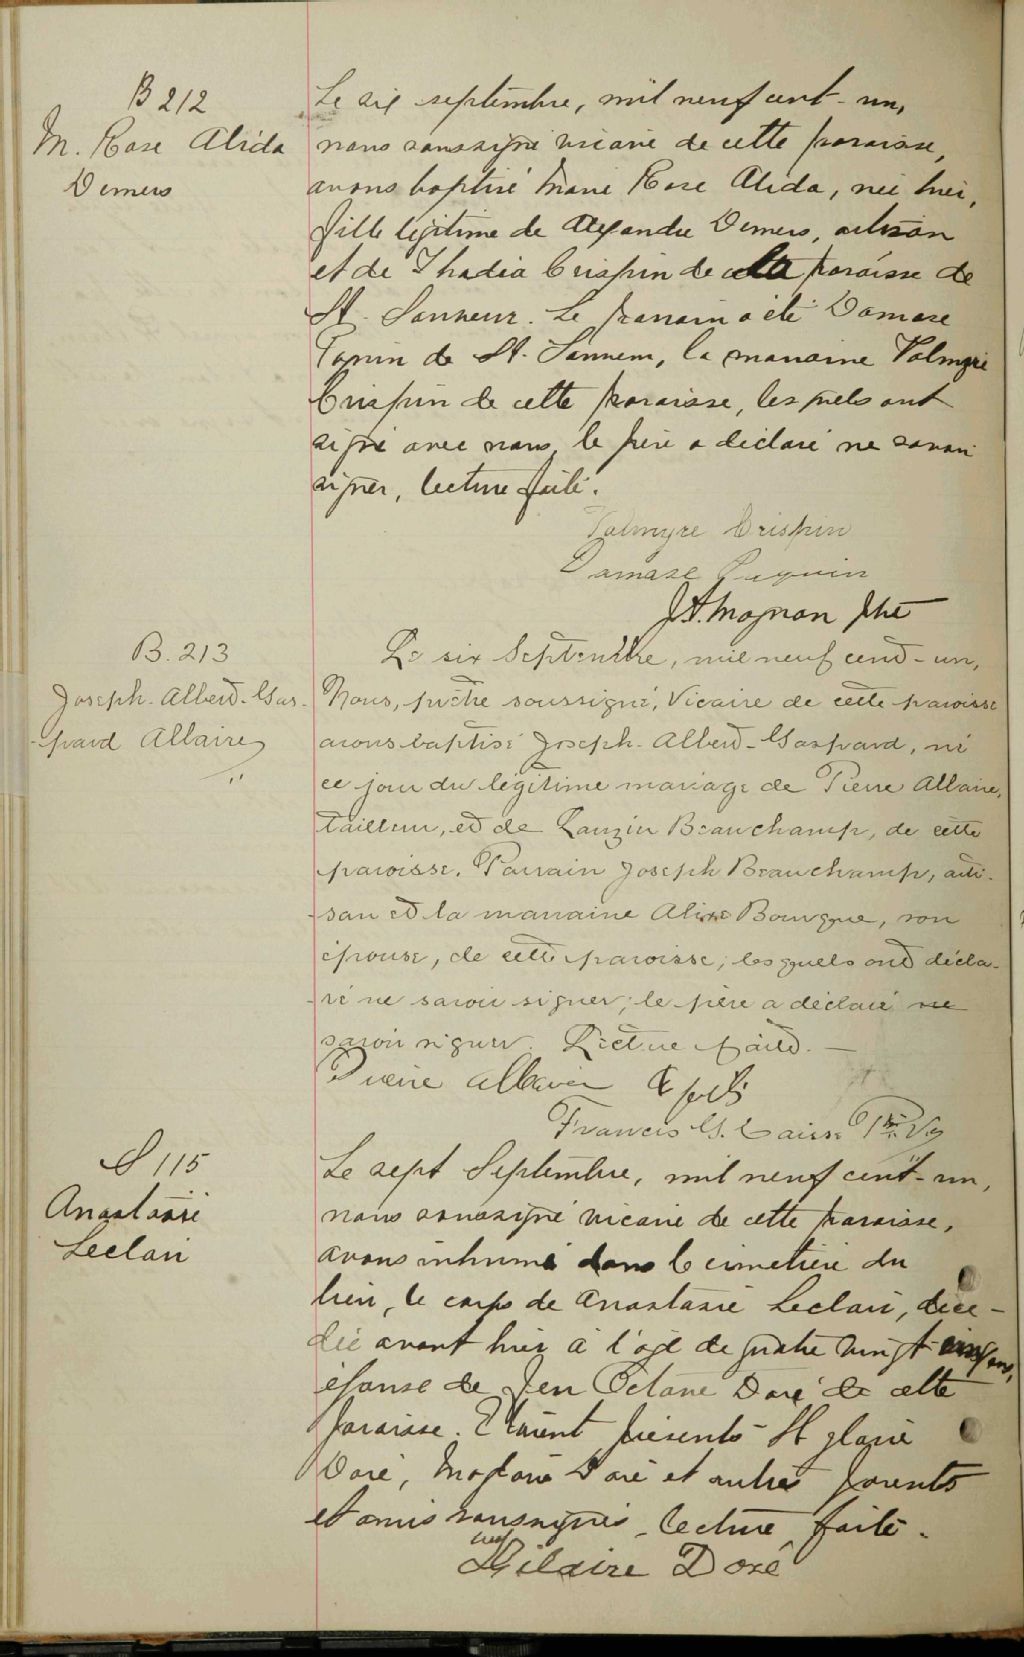 B 212
M. Rose Alida
Demers
Le six septembre, mil neuf cent-un,
nous soussigné vicaire de cette paroisse,
avons baptisé Marie Rose Alida, née hier,
fille légitime de Alexandre Demers, artisan
et de Crispin de la paroisse de
St. Sauveur. Le parrain a été Damase
de St. Sauveur, la marraine Valmyre
Crispin de cette paroisse, lesquels ont
signé avec nous, le père a déclaré ne savoir
signer, lecture faite.
Valmyre Crispin
Damase Paquin
J.A. Magnan Ptre
B. 213
Joseph-Albert-Gas-
-pard Allaire
Le six Septembre, mil neuf cent-un,
Nous, prêtre soussigné, Vicaire de cette paroisse
avons baptisé Joseph-Albert-Gaspard, né
ce jour du légitime mariage de Pierre Allaire,
tailleur, et de Beauchamp, de cette
paroisse. Parrain Joseph Beauchamp, arti-
-san et la marraine Bourque, son
épouse, de cette paroisse, lesquels ont décla-
-ré ne savoir signer; le père a déclaré ne
savoir signer. Lecture faite.—
Pierre Allaire
Francis G. Ptre Vic
S 115
Anastasie
Leclair
Le sept Septembre, mil neuf cent-un,
nous soussigné vicaire de cette paroisse,
avons inhumé dans le cimetière du
lieu, le corps de Anastasie Leclair, décé-
dée avant hier à l'age de quatre vingt ans,
épouse de feu Octave Doré de cette
paroisse. Etaient présents
Doré, Doré et autres parents
et amis soussignés. Lecture faite.
Hilaire Doré